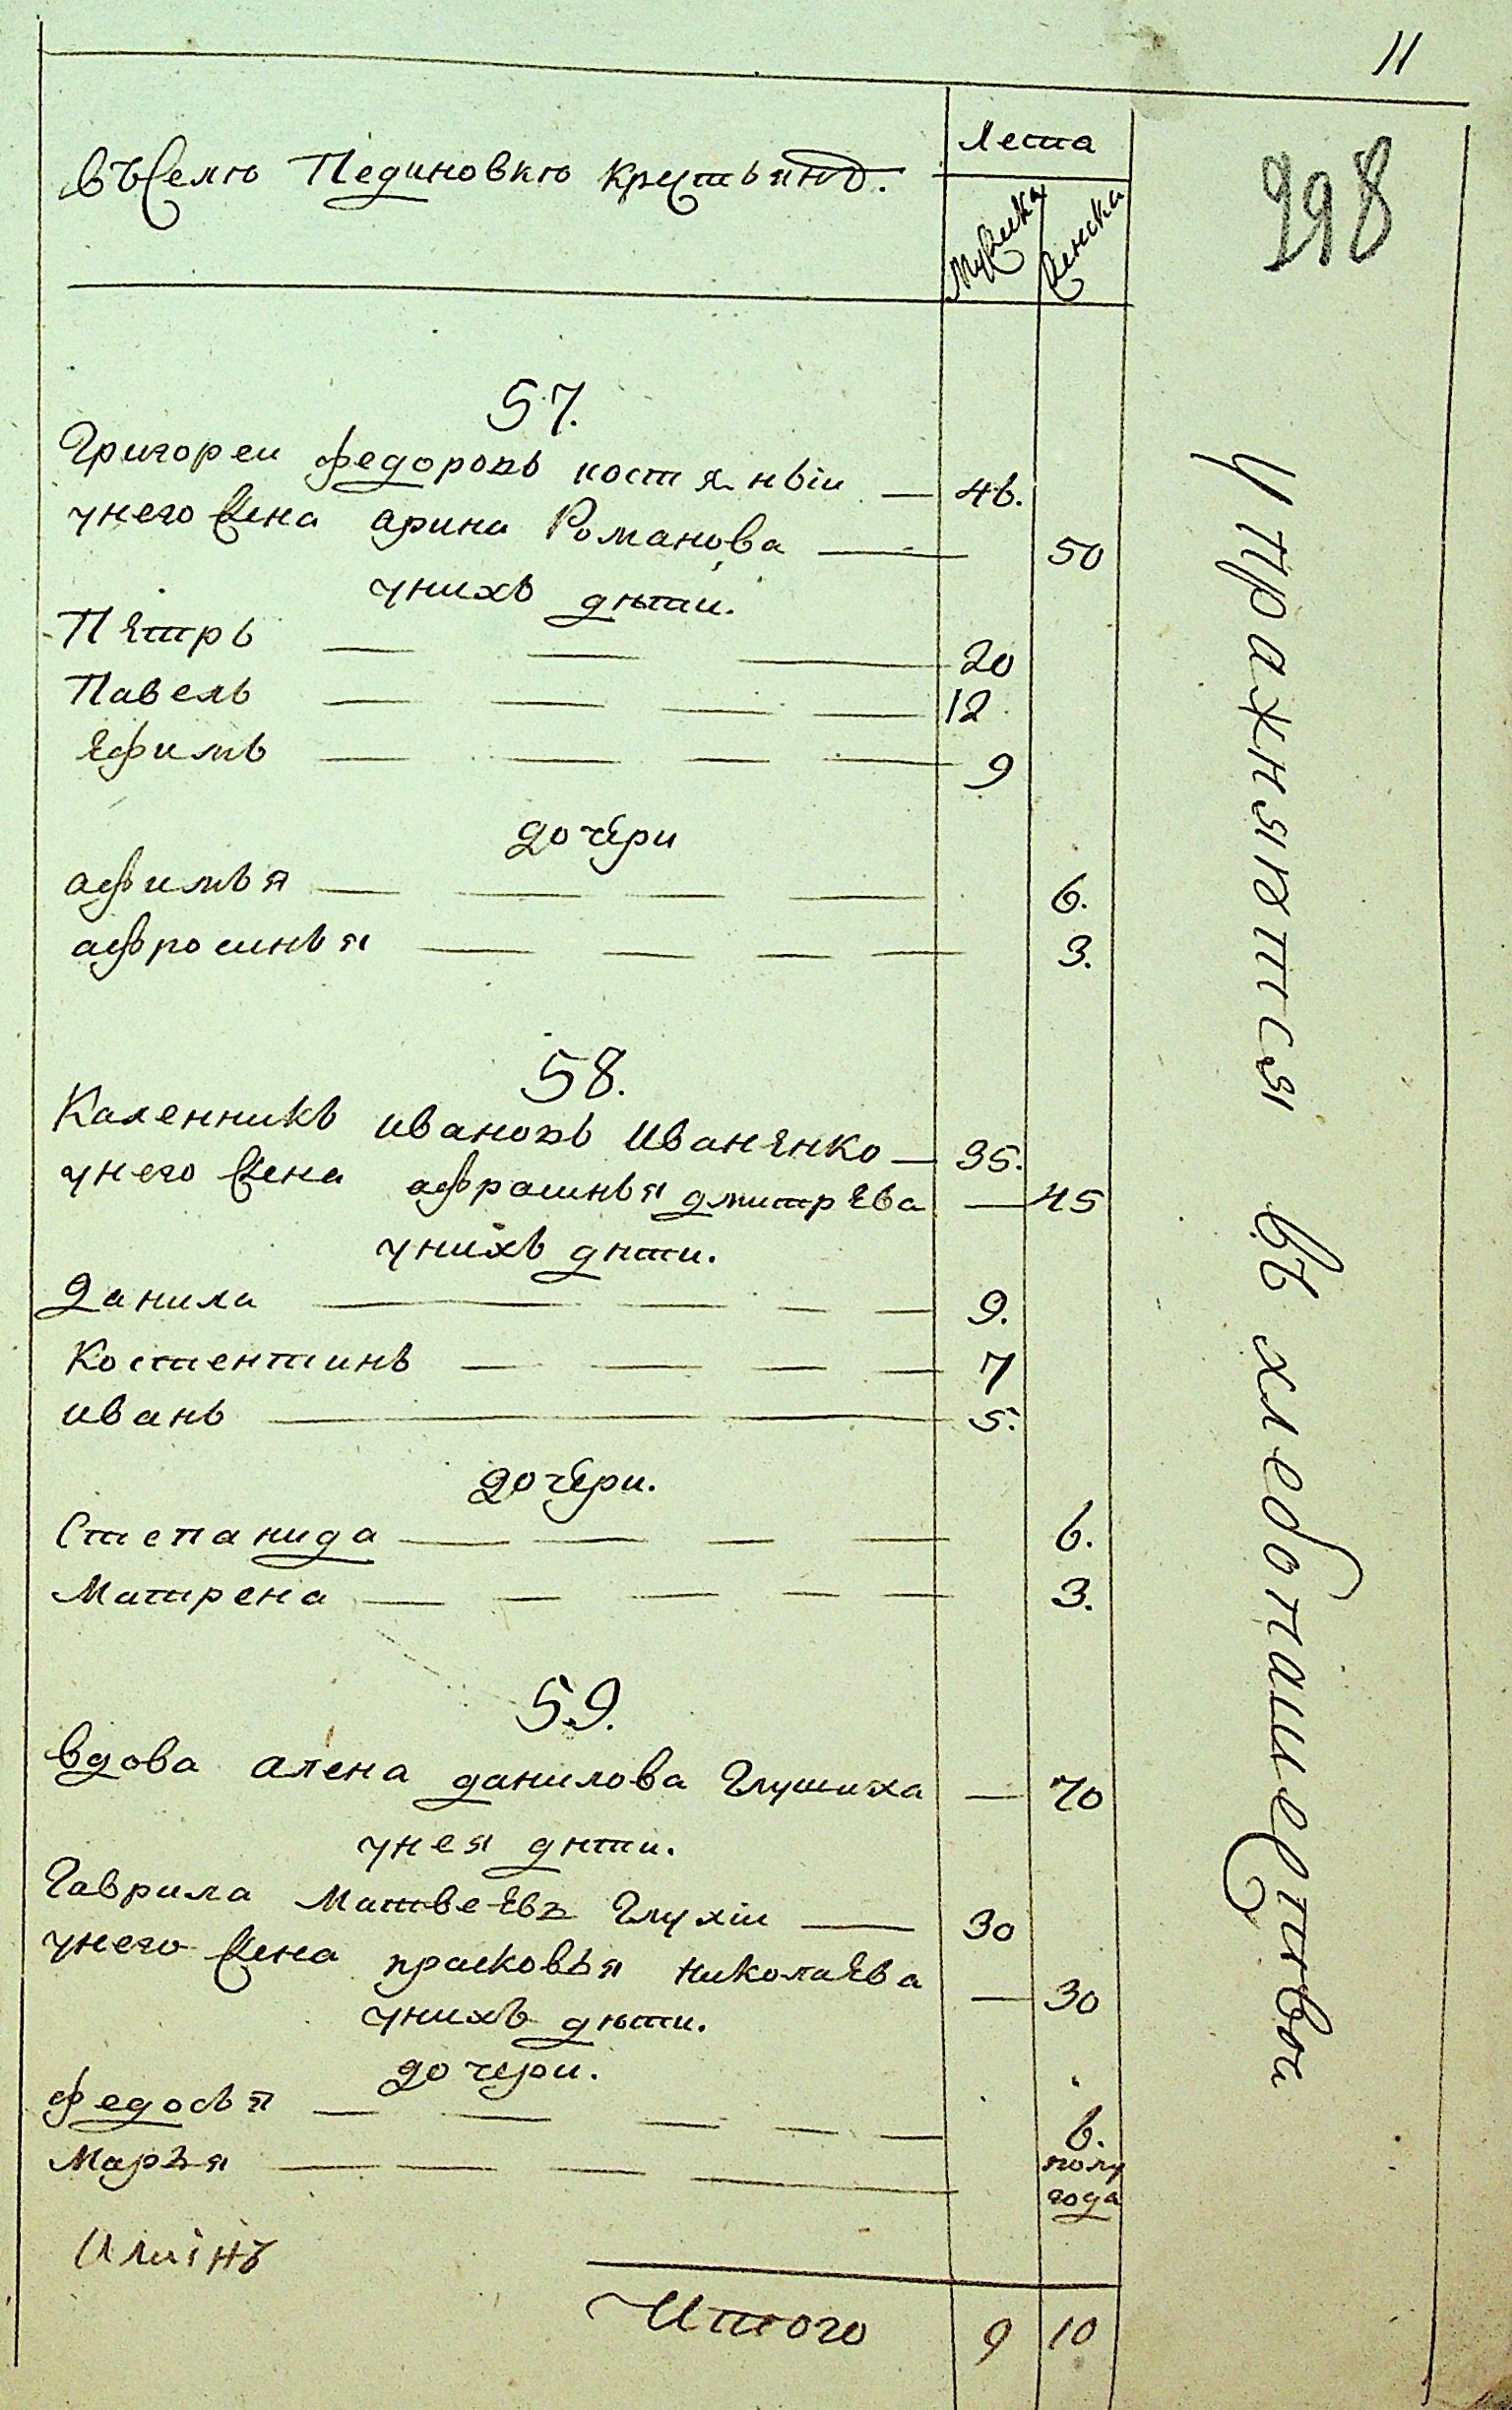 11
298
въ Селѣ Пединовкѣ крстьянъ.
Лета
Мужска Женска
57.
Григореи федоровъ костяныи — 46.
унего жена арина Романова — 50
унихъ дѣти.
Пѣтръ — — — 20
Павелъ — — — — 12
Ефимъ — — — — 9
дочери
афимья — — — — 6.
афросинья — — — — 3.
58.
Каленникъ ивановъ иваненко — 35.
унего жена афрасинья дмитрева — 45
унихъ дѣти.
данила — — — — 9.
Костентинъ — — — — 7
иванъ — — 5.
дочери.
Степанида — — — — 6.
Матрена — — — — — 3.
59.
вдова алена данилова Глушиха — 70
унея дѣти.
Гаврила Матвеевъ Глухiи — 30
унего жена прасковья николаева — 30
унихъ дѣти.
дочери.
федосья — — — — — 6.
Марья — — — — полу
года
Итого 9 10
Упражняются въ хлебопашественныи